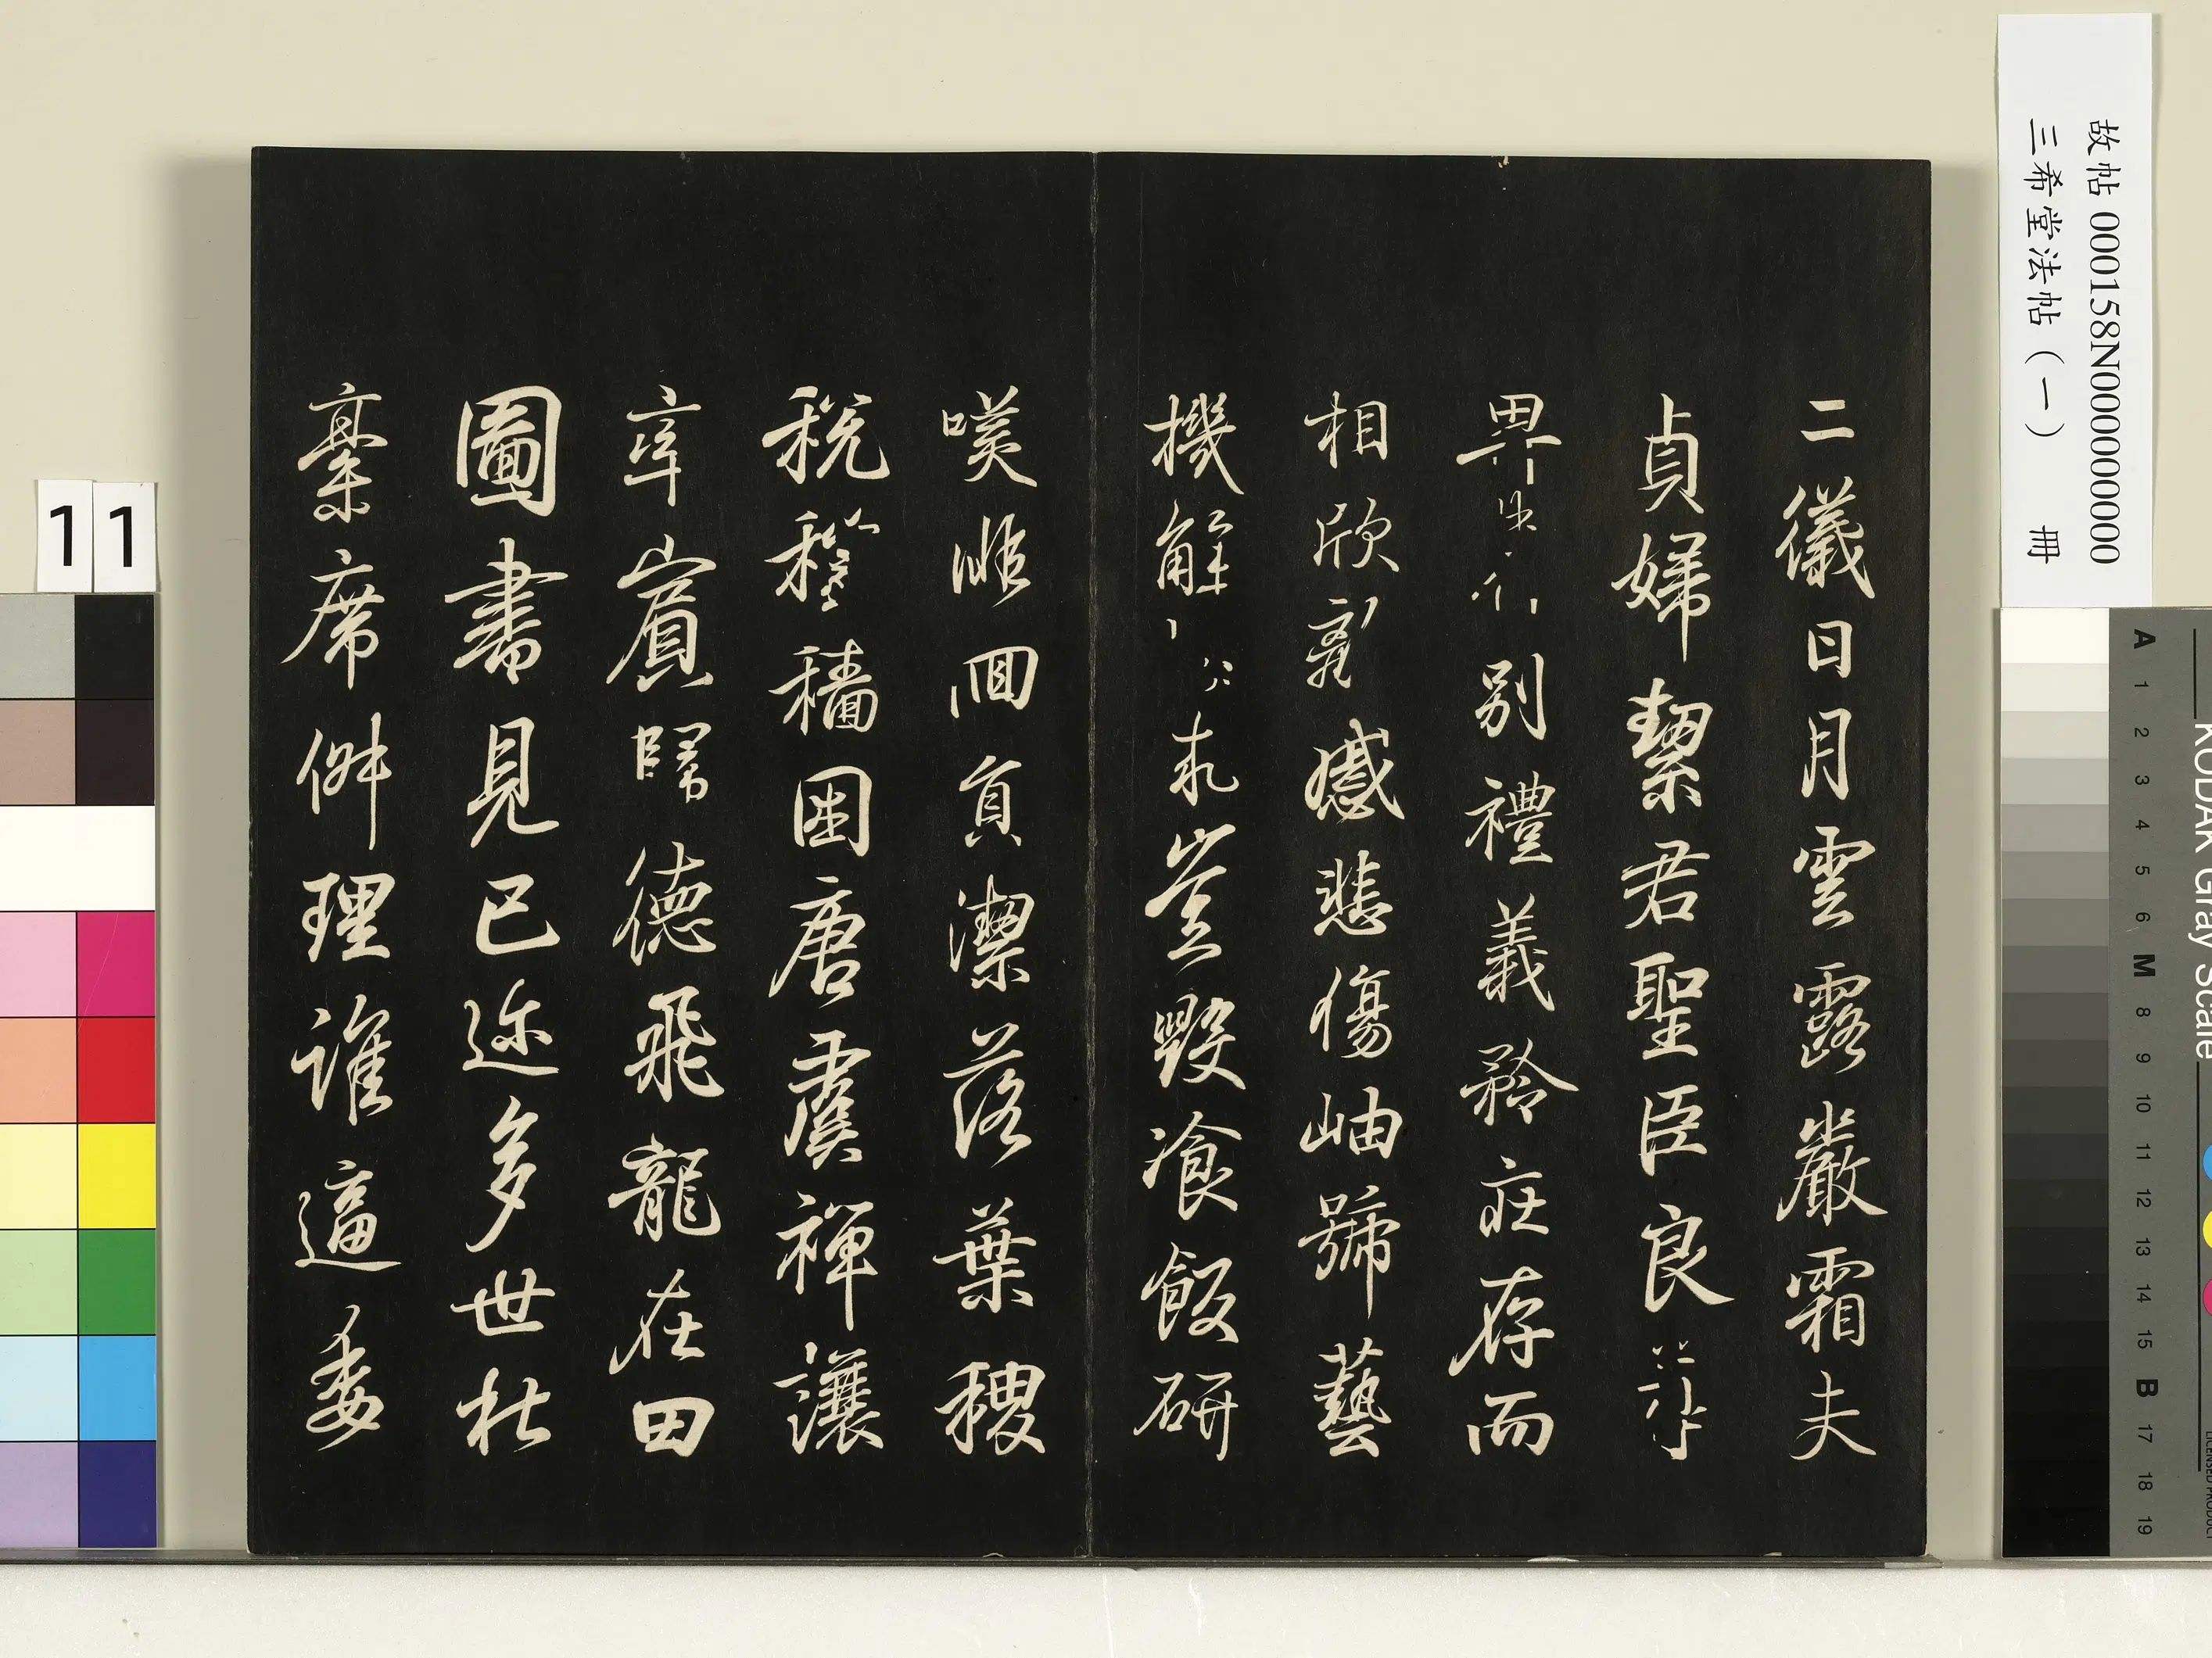 二儀日月雲露嚴霜夫
貞婦絜君聖臣良
別禮義矜莊存而
相欣感悲傷岫號藝
機解豈毀飡飯研
嘆回貞潔落葉稷
稅穡困唐虞禪讓
率賓歸德飛龍在田
圖書見已迩多世杜
稾席理誰逼委
故帖 000158N000000000
三希堂法帖（一） 冊
11
KODAK Gray Scale
A 1 2 3 4 5 6 M 8 9 10 11 12 13 14 15 B 17 18 19